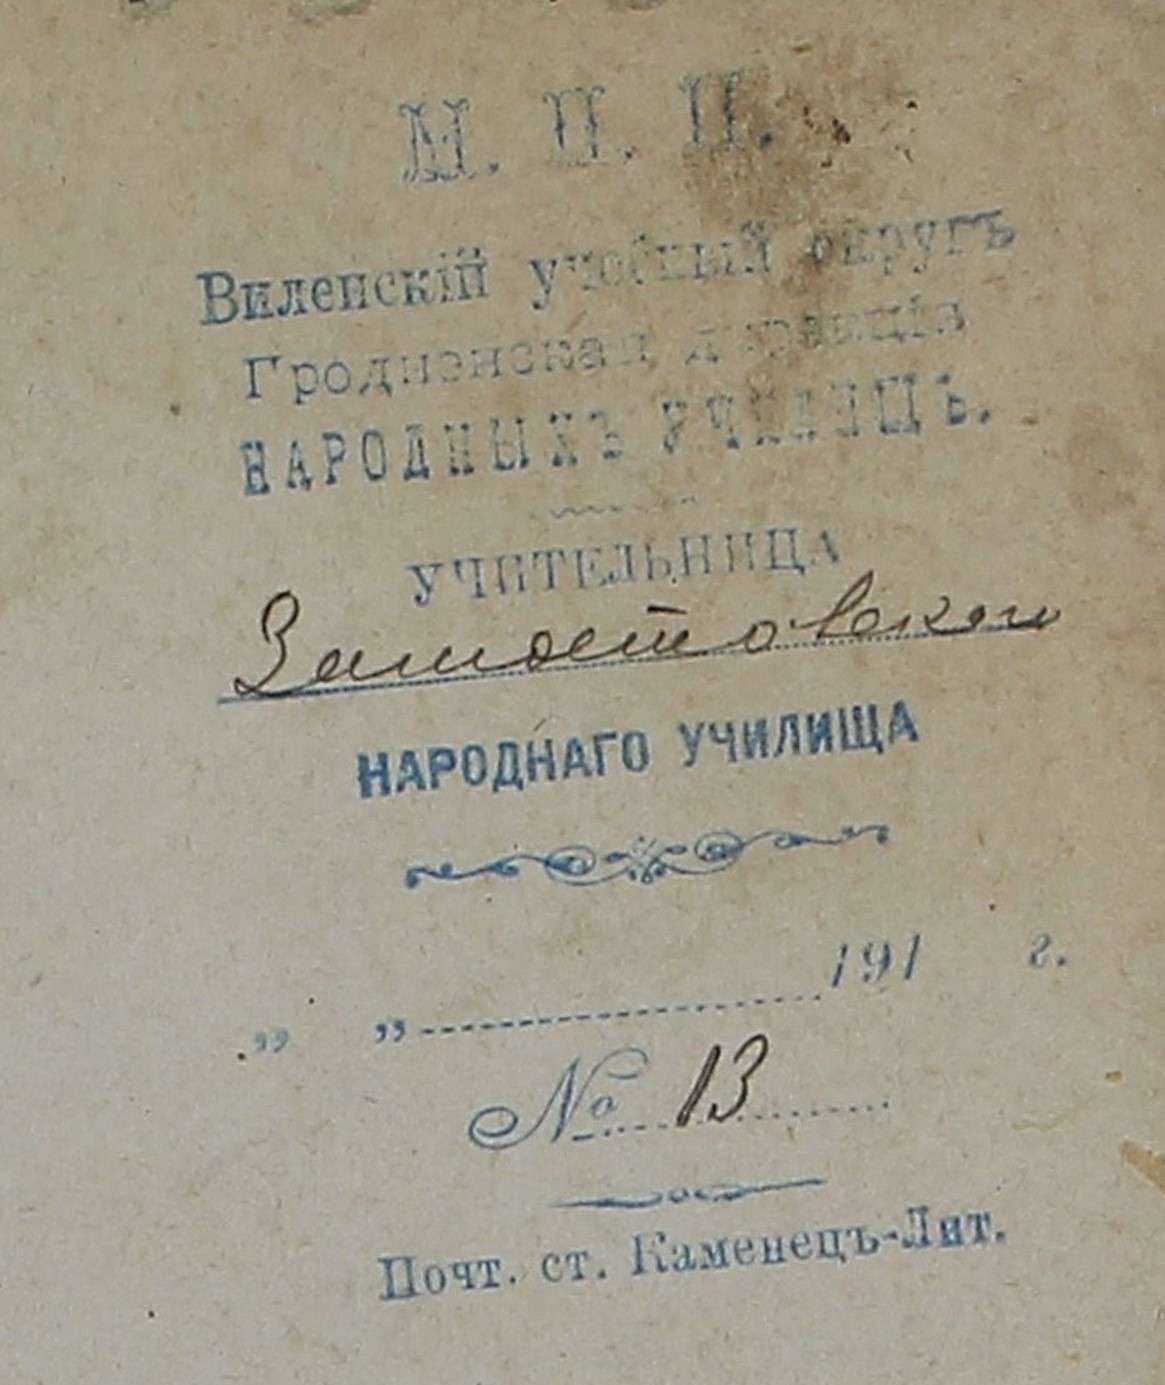 М. Н. П.
Виленскій учебный округъ
Гродненская дирекція
НАРОДНЫХЪ УЧИЛИЩЪ.
УЧИТЕЛЬНИЦА
Замостовского
НАРОДНАГО УЧИЛИЩА
„ „ 191 г.
№ 13
Почт. ст. Каменецъ-Лит.